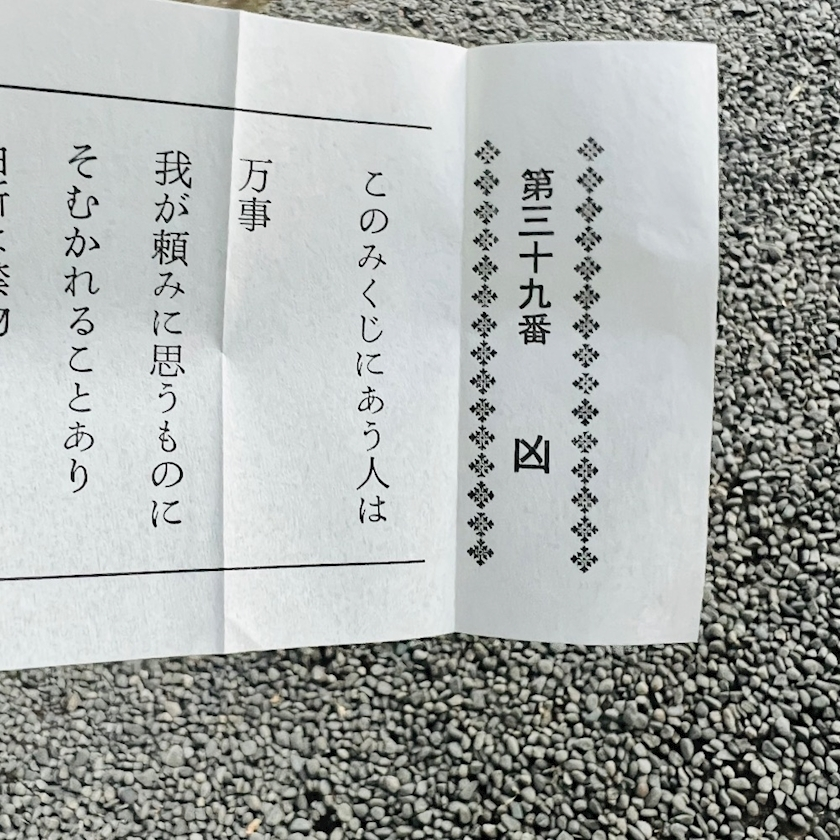 第三十九番 凶
このみくじにあう人は
万事
我が頼みに思うものに
そむかれることあり